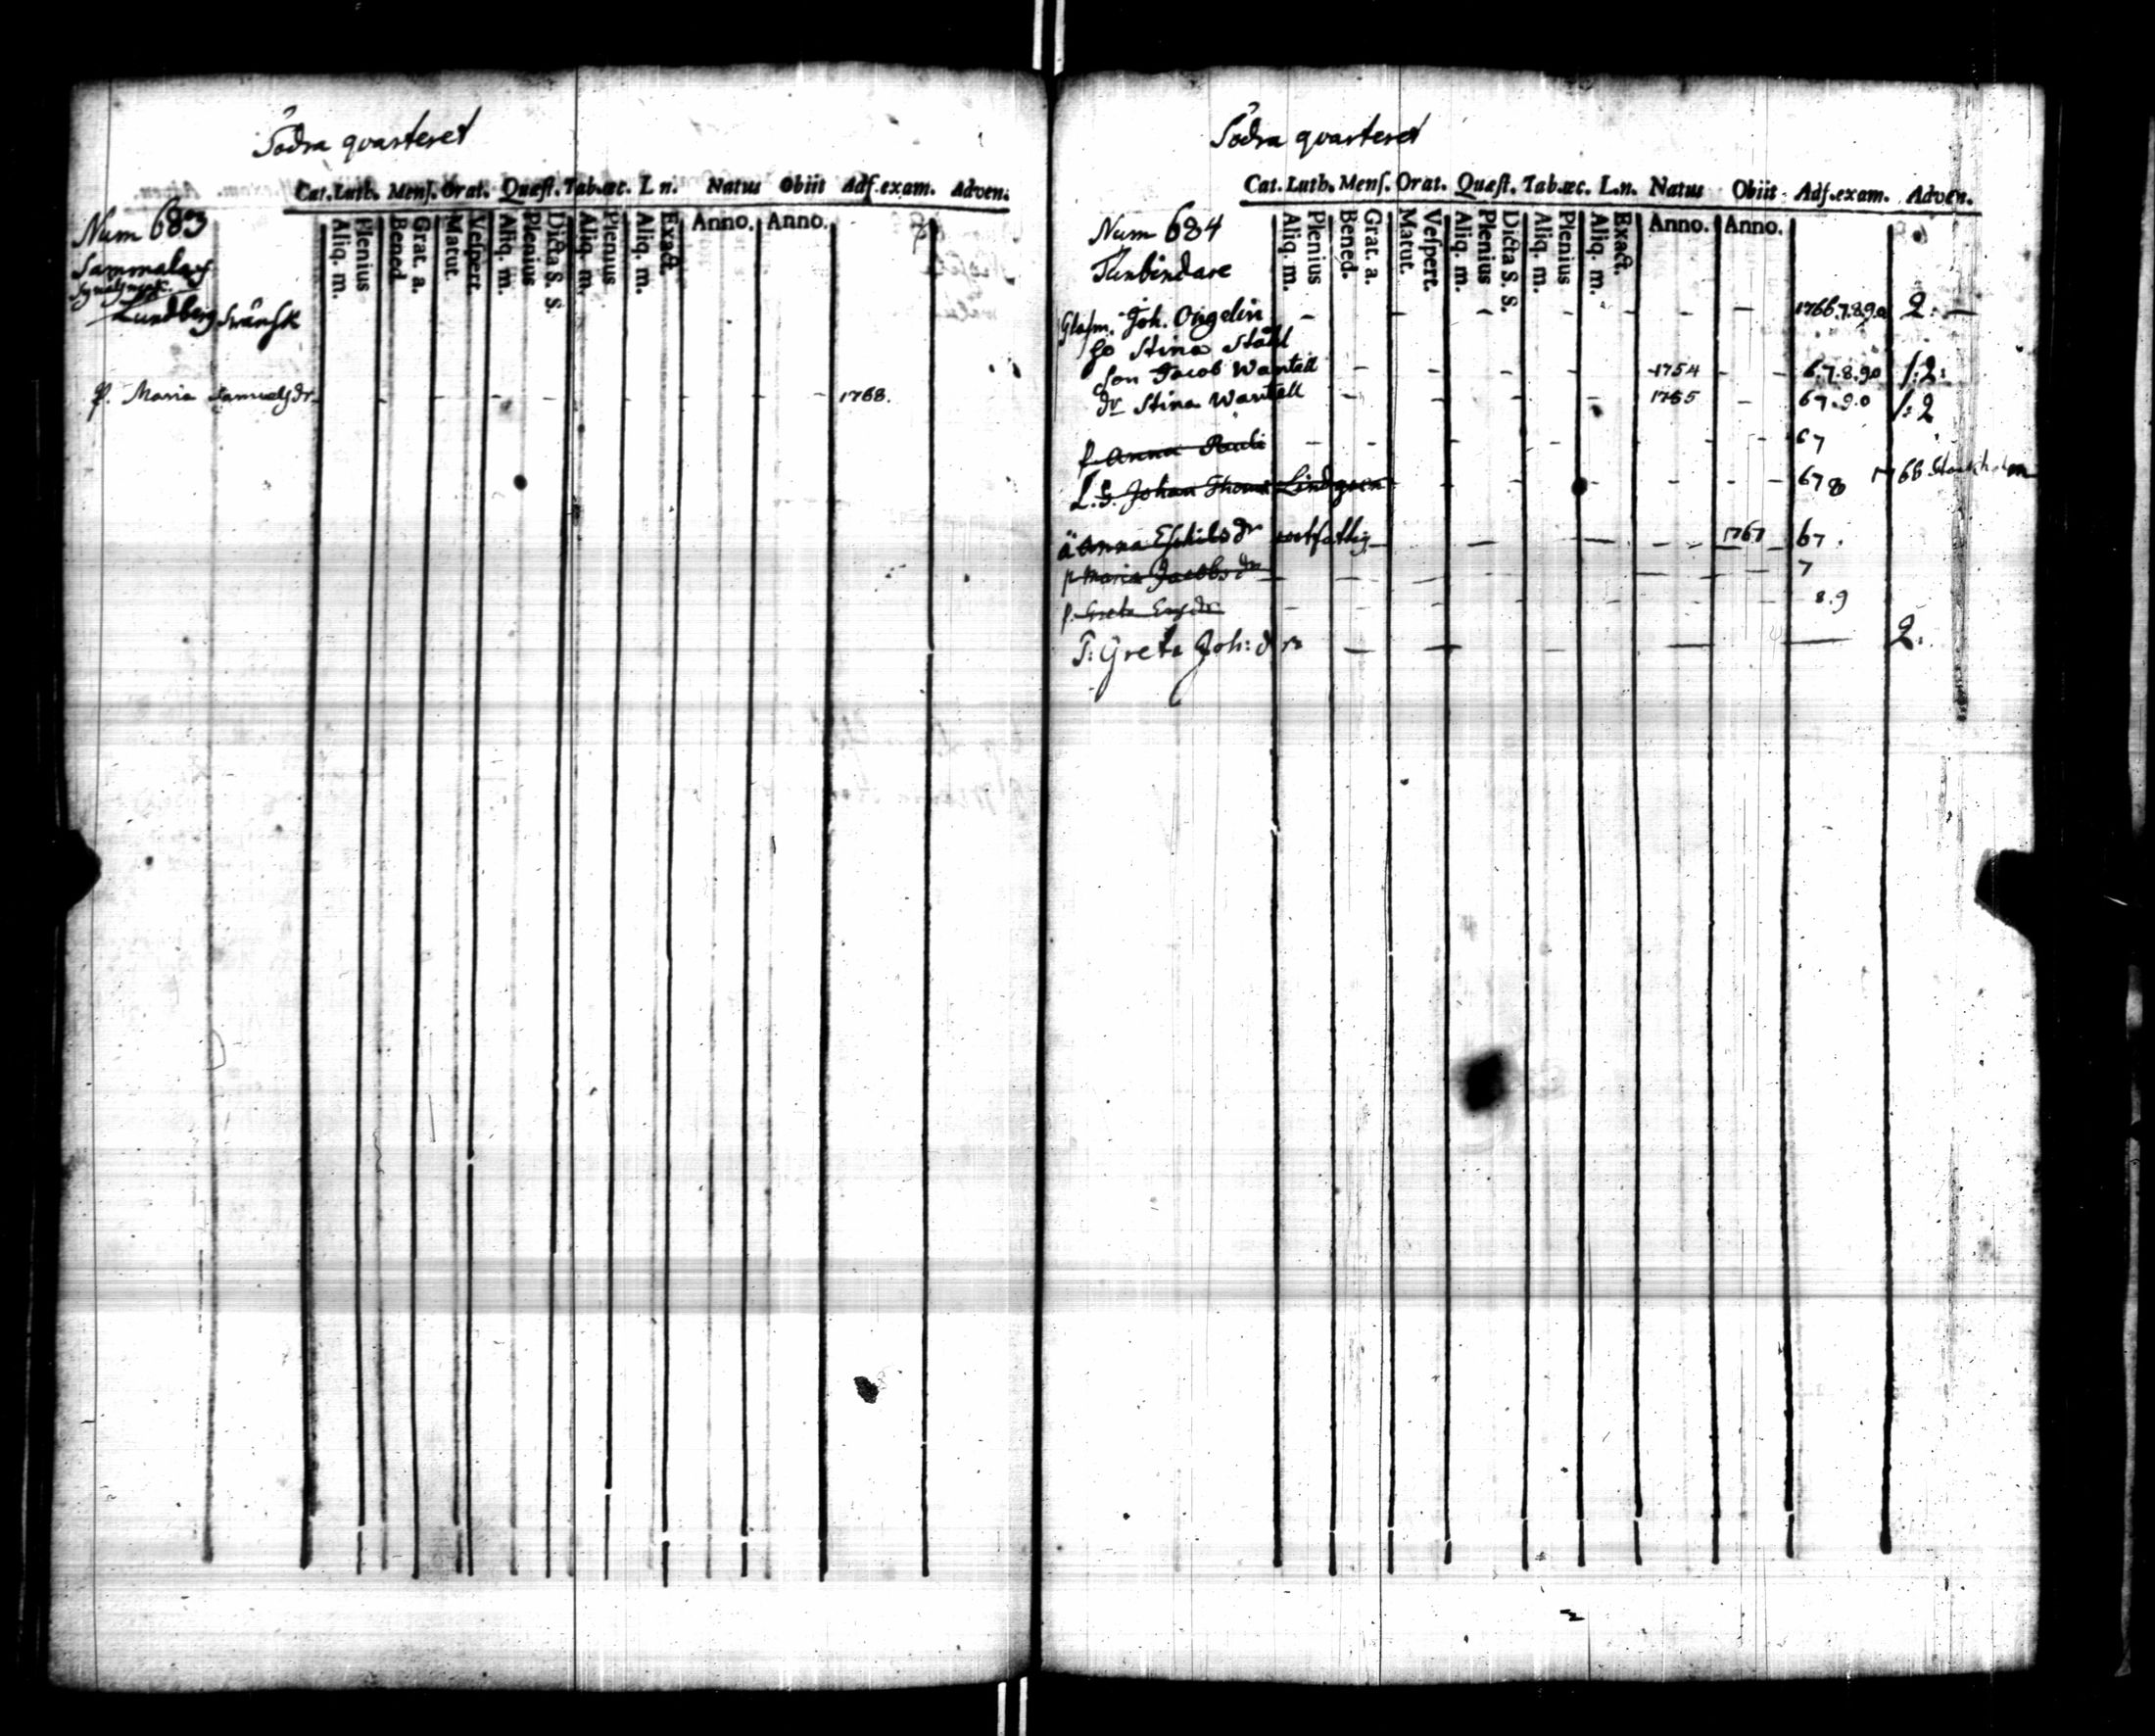 Södra qvarteret
Cat. Luth. Mens. Orat. Quæst. Tab. œc. L. n. Natus Obiit Adf. exam. Adven.
Aliq. m. Plenius Bened. Grat. a. Matut. Vespert. Aliq. m. Plenius Dicta S. S. Aliq. m. Plenius Aliq. m. Exact. Anno. Anno.
Num 683
Lundberg Swänsk
p. Maria Samuelsdr 1768.
Södra qvarteret
Cat. Luth. Mens. Orat. Quæst. Tab. œc. L. n. Natus Obiit Adf. exam. Adven.
Aliq. m. Plenius Bened. Grat. a. Matut. Vespert. Aliq. m. Plenius Dicta S. S. Aliq. m. Plenius Aliq. m. Exact. Anno. Anno.
Num 684
Tunbindare
Glasm. Joh. Ongelin — 1766.7.8.9.0 2: —
Stina Stål
Son Jacob Wantell 1754 6.7.8.90 1:2:
dr Stina Wantell 1765 67.9.0 1:2
p. Anna 67
L. G. Johan Thom Lindgren 678 1768 Stockholm
Anna Eskilsdr utfattig 1767 67.
p Maria Jacobsdr 7
p. Greta 8.9
P: Greta Joh: dr 2: